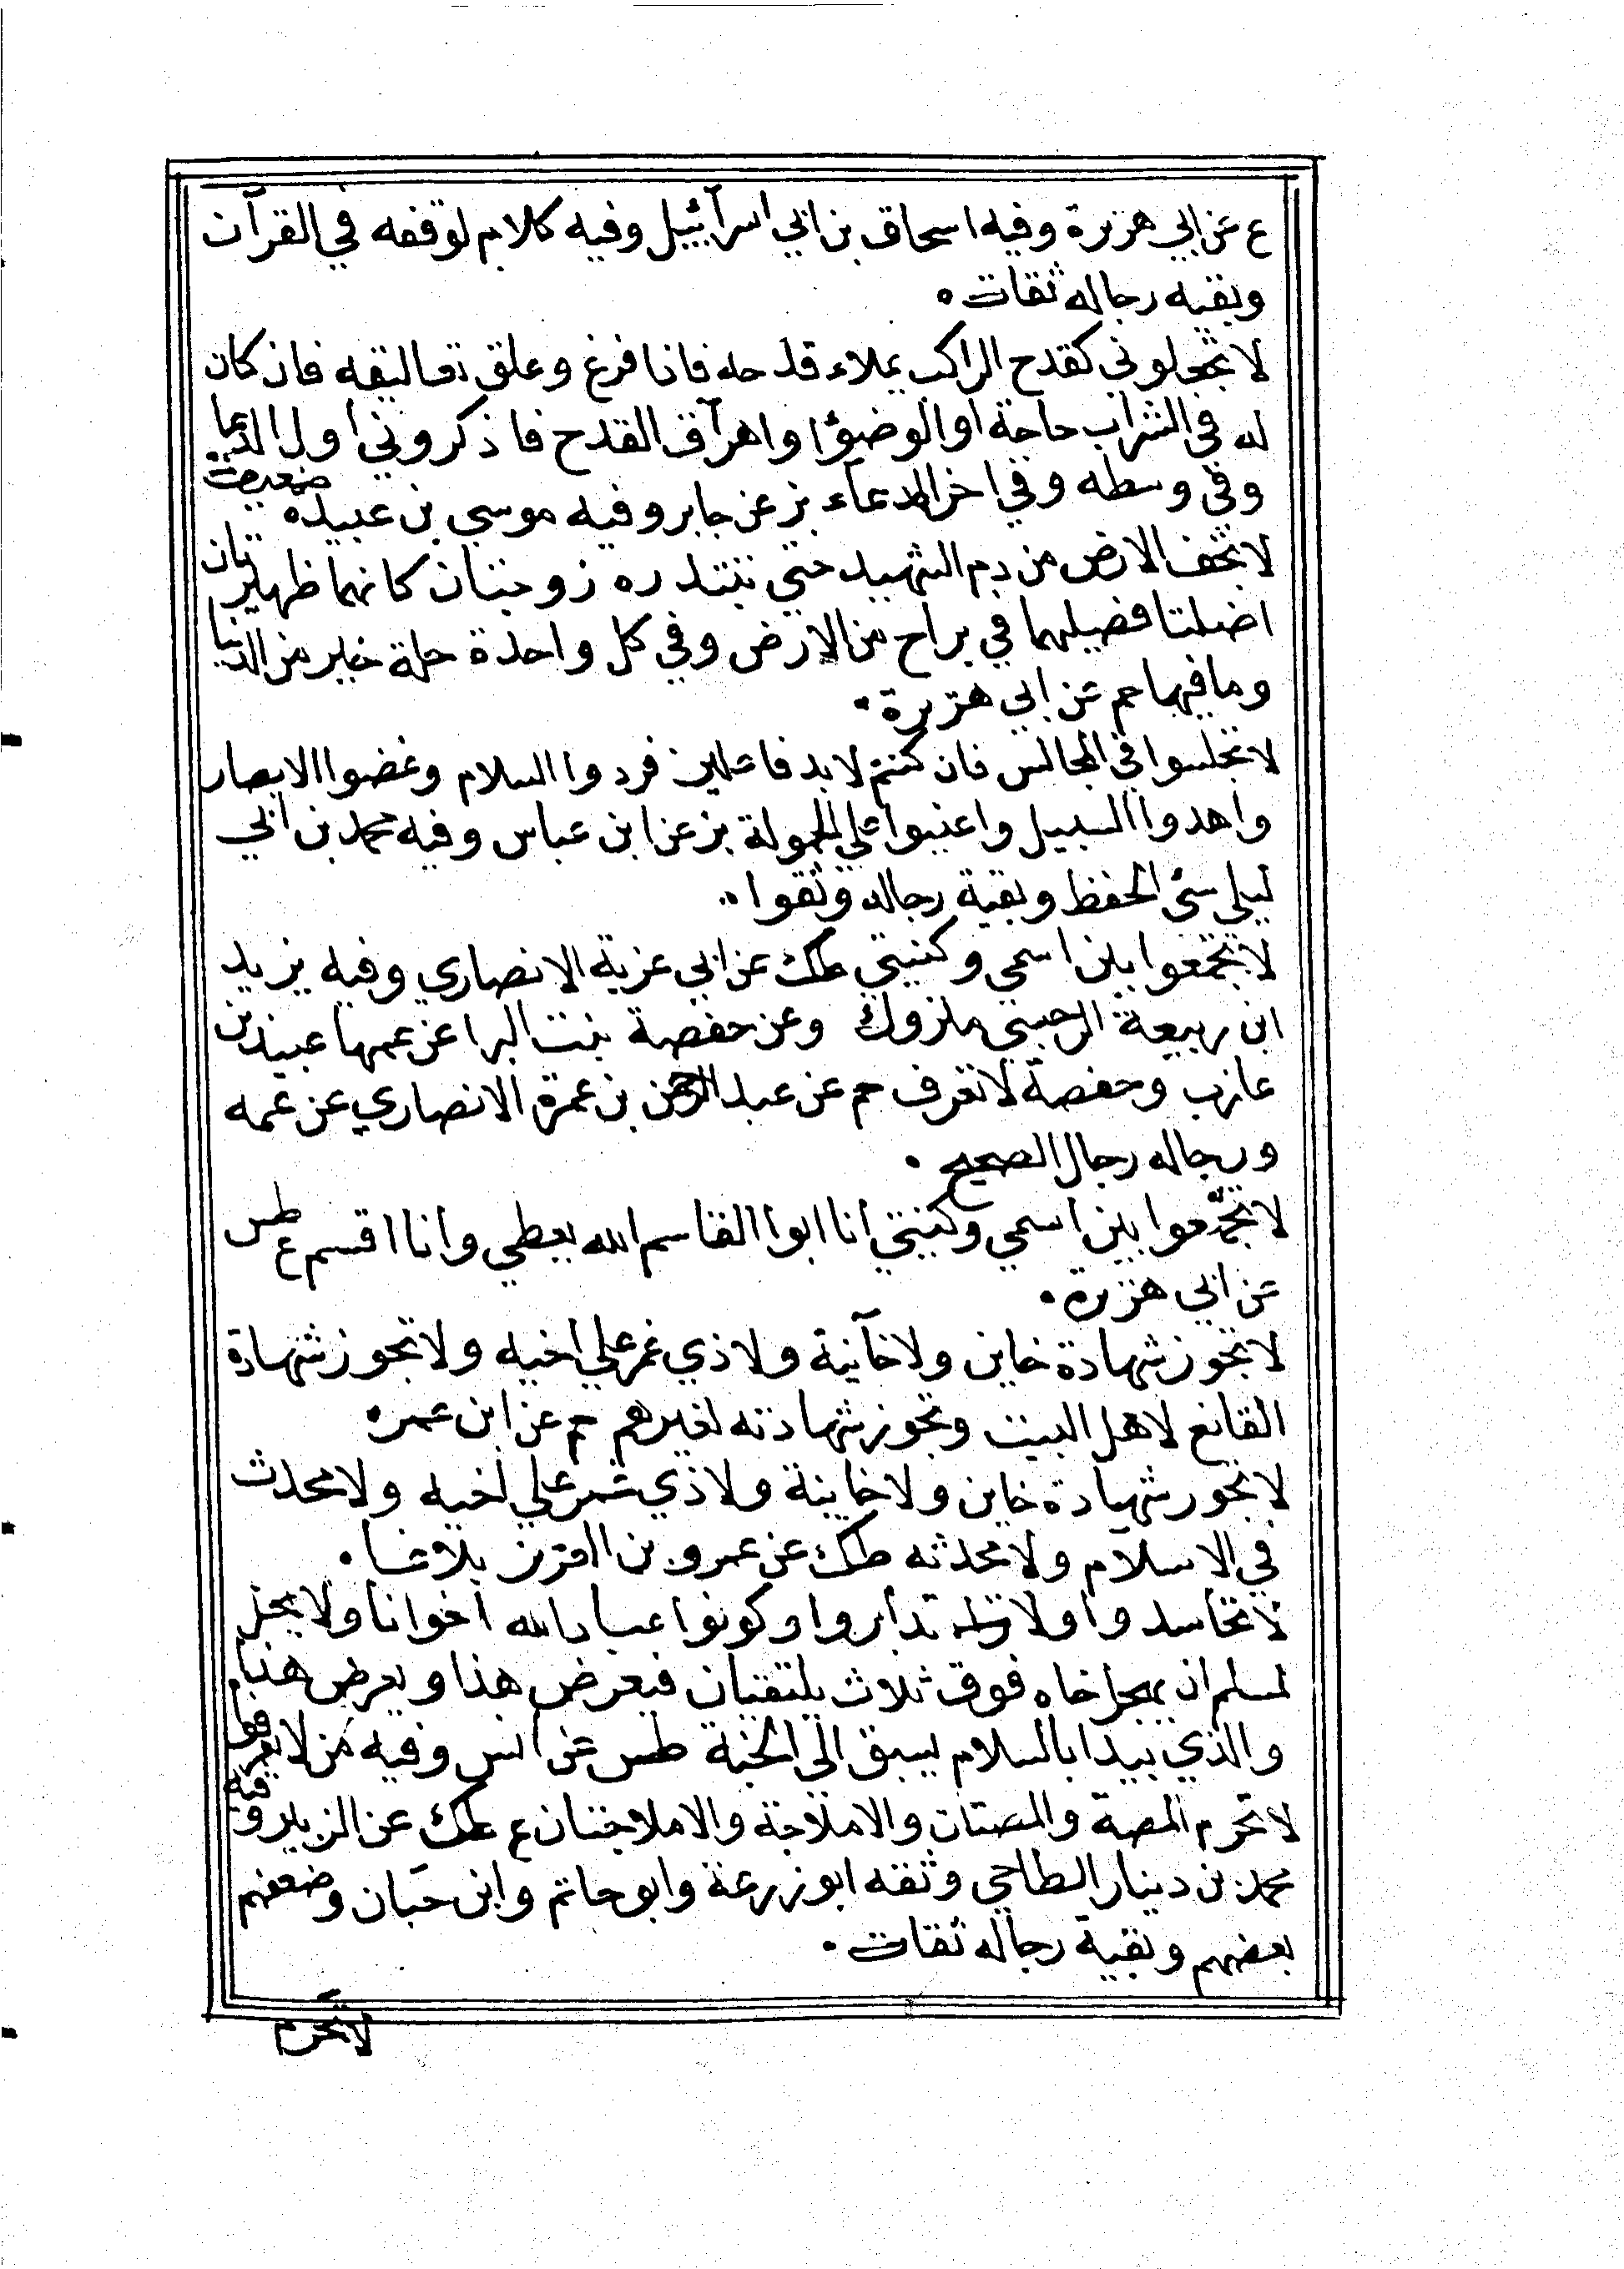 ع عن ابي هريرة وفيه اسحاق بن ابي اسرآييل وفيه كلام لوقفه في القرآن
وبقيه رجاله ثقات ه
لا تجعلوني كقدح الراكب يملاء قدحه فاذا فرغ وعلق تعاليقه فان كان
له في الشراب حاجة او الوضوا واهرآق القدح فاذكروني اول الدعا
وفي وسطه وفي اخر الدعآء بز عن جابر وفيه موسي بن عبيده ضعيف
لا تجف الارض من دم الشهيد حتي تبتدره زوجتان كانهما ظهيرتان
اضلتا فصيلهما في براح من الارض وفي كل واحدة حلة خير من الدنيا
وما فيها حم عن ابي هريرة .
لا تجلسوا في المجالس فان كنتم لا بد فاعلين فردوا السلام وغضوا الابصار
واهدوا السبيل واعنيوا علي الحمولة بز عن ابن عباس وفيه محمد بن ابي
ليلي سئ الحفظ وبقية رجاله وثقوا ه
لا تجمعوا بين اسمي وكنيتي طك عن ابي عزية الانصاري وفيه يزيد
ابن ربيعة الرحبي متروك وعن حفصة بنت البرا عن عمها عبيد بن
عازب وحفصة لا تعرف حم عن عبد الرحمن بن عمرة الانصاري عن عمه
ورجاله رجال الصحيح .
لا تجمعوا بين اسمي وكنيتي انا ابوا القاسم الله يعطي وانا اقسم ع طس
عن ابي هريرة .
لا تجوز شهادة خاين ولا خآنية ولا ذي غمر علي اخيه ولا تجوز شهادة
القانع لاهل البيت وتجوز شهادته لغيرهم حم عن ابن عمر ه
لا تجوز شهادة خاين ولا خاينة ولا ذي غمر علي اخيه ولا محدث
في الاسلام ولا محدثه طك عن عمرو بن بلاغا .
لا تحاسدوا ولا تدابروا وكونوا عباد الله اخوانا ولا يحل
لمسلم ان يهجر اخاه فوق ثلاث يلتقيان فيعرض هذا ويعرض هذا
والذي يبدا بالسلام يسبق الي الجنة طس عن انس وفيه من لا يعرفوا
لا تحرم المصة والمصتان والاملاجة والاملاجتان ع طك عن الزبير وفيه
محمد بن دينار الطاحي وثقه ابو زرعة وابو حاتم وابن حبان وضعفهم
بعضهم وبقية رجاله ثقات .
لا تحرم